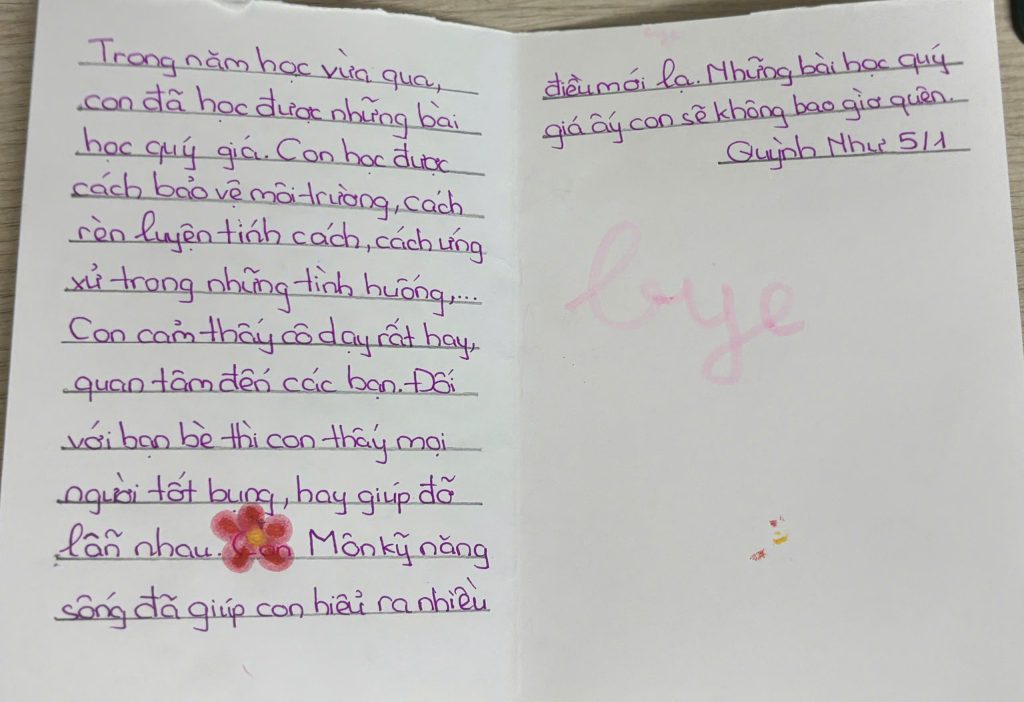 Trong năm học vừa qua,
con đã học được những bài
học quý giá. Con học được
cách bảo vệ môi trường, cách
rèn luyện tính cách, cách ứng
xử trong những tình huống,...
Con cảm thấy cô dạy rất hay,
quan tâm đến các bạn. Đối
với bạn bè thì con thấy mọi
người tốt bụng, hay giúp đỡ
lẫn nhau. Môn kỹ năng
sống đã giúp con hiểu ra nhiều
điều mới lạ. Những bài học quý
giá ấy con sẽ không bao giờ quên.
Quỳnh Như 5/1
bye